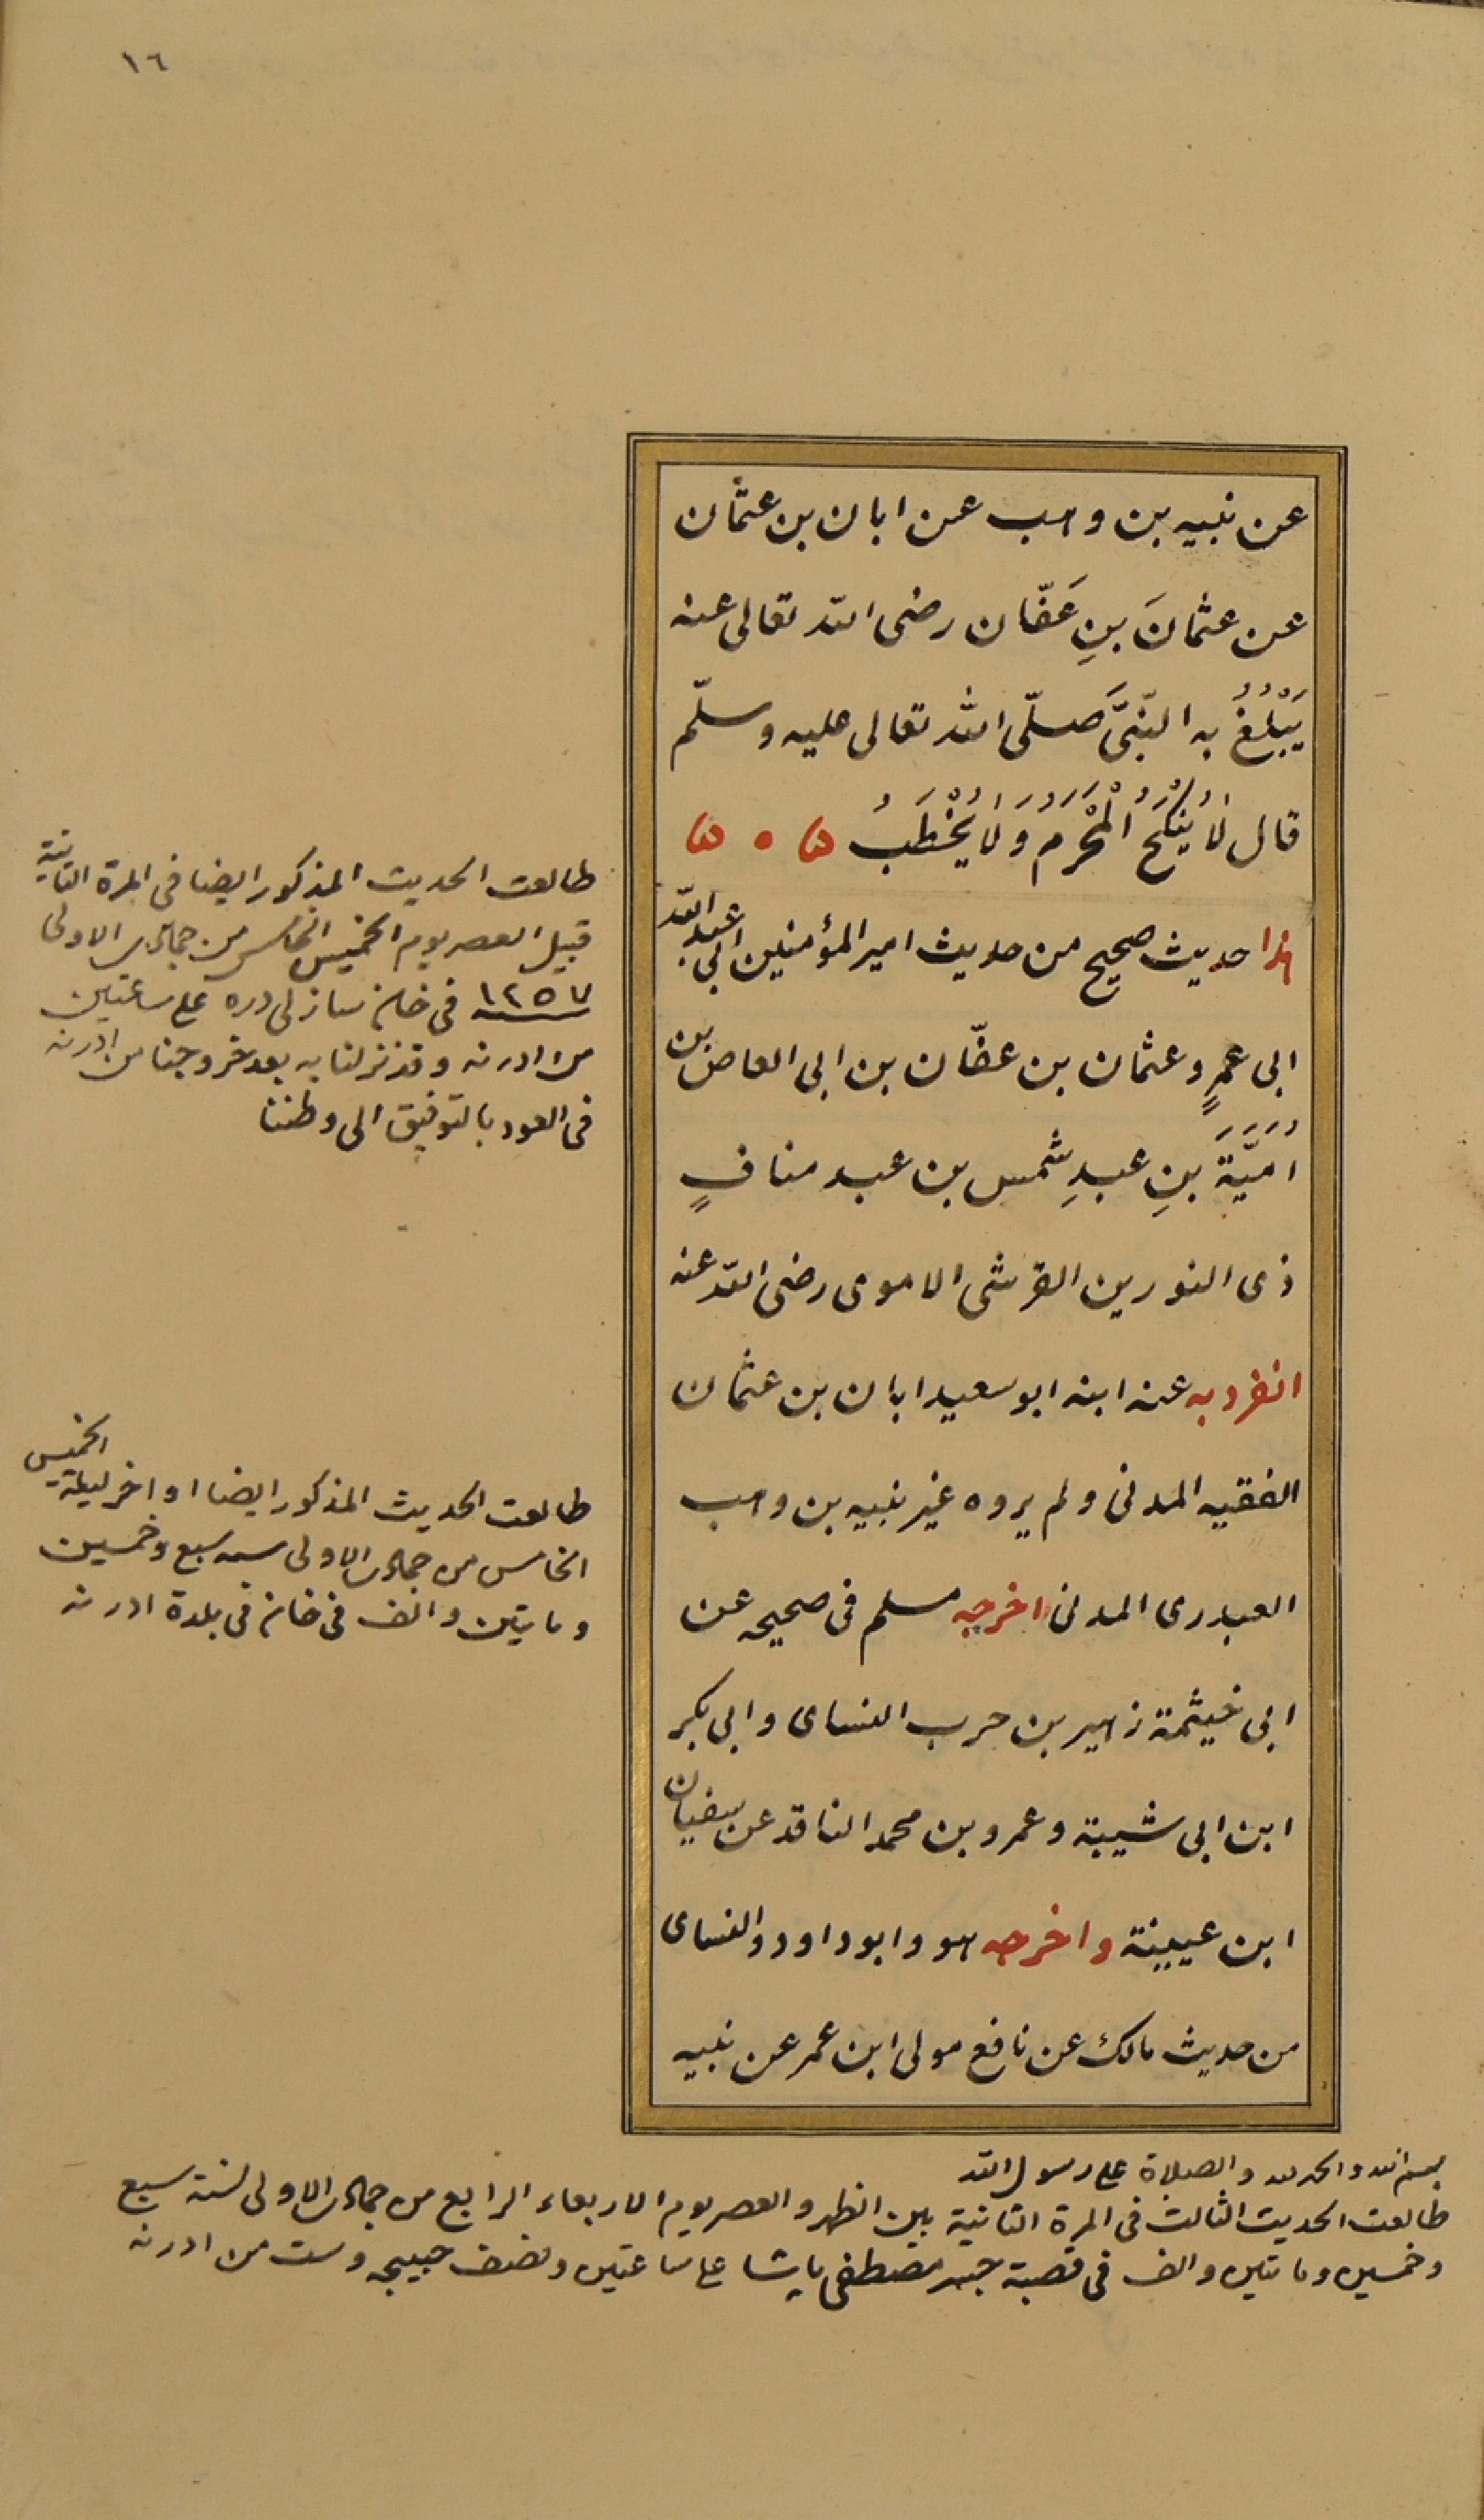 ١٦
عن نبيه بن وهب عن ابان بن عثمان
عن عثمانَ بنِ عَفّان رضى الله تعالى عنه
يَبْلُغُ به النّبىَّ صلّى الله تعالى عليه وسلّم
قال لَا يُنْكَحُ الْمُحْرِمُ وَلَا يُخْطَبُ ه ه ه
هذا حديث صحيح من حديث امير المؤمنين ابى عبد الله
ابى عمرٍو عثمان بن عفّان بن ابى العاص بن
اُمَيَّةَ بنِ عبدِ شمس بن عبد منافٍ
ذى النورين القرشى الاموى رضى الله عنه
انفرد به عنه ابنه ابو سعيد ابان بن عثمان
الفقيه المدنى ولم يروه غير نبيه بن وهب
العبدرى المدنى اخرجه مسلم فى صحيحه عن
ابى خيثمة زهير بن حرب النساى وابى بكر
ابن ابى شيبة وعمرو بن محمد الناقد عن سفيان
ابن عيينة واخرجه هو وابو داود والنساى
من حديث مالك عن نافع مولى ابن عمر عن نبيه
طالعت الحديث المذكور ايضا فى المرة الثانية
قبيل العصر يوم الخميس الخامس من جمادى الاولى
١٢٥٧ فى خان سازلى دره على ساعتين
من ادرنه وقد نزلنا به بعد خروجنا من ادرنه
فى العود بالتوفيق الى وطننا
طالعت الحديث المذكور ايضا اواخر ليلة الخميس
الخامس من جمادى الاولى سنه سبع وخمسين
ومايتين والف فى خان فى بلدة ادرنه
بسم الله والحمد لله والصلاة على رسول الله
طالعت الحديث الثالث فى المرة الثانية بين الظهر والعصر يوم الاربعاء الرابع من جمادى الاولى لسنة سبع
وخمسين ومائتين والف فى قصبة جسر مصطفى پاشا على ساعتين ونصف وست من ادرنه